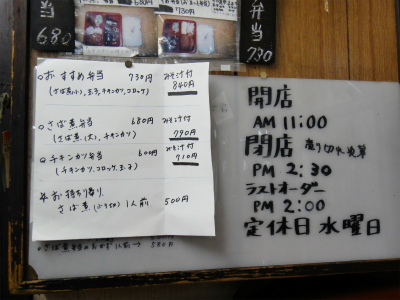 当
680
弁当
730
680円
730円
○おすすめ弁当 730円 みそ汁付
840円
(さば煮(小)、玉子、チキンカツ、コロッケ)
○さば煮弁当 680円 みそ汁付
790円
(さば煮(大)、チキンカツ)
○チキンカツ弁当 600円 みそ汁付
710円
(チキンカツ、コロッケ、玉子)
☆お持ち帰り
さば煮 1人前 500円
開店
AM 11:00
閉店 売り切れ次第
PM 2:30
ラストオーダー
PM 2:00
定休日 水曜日